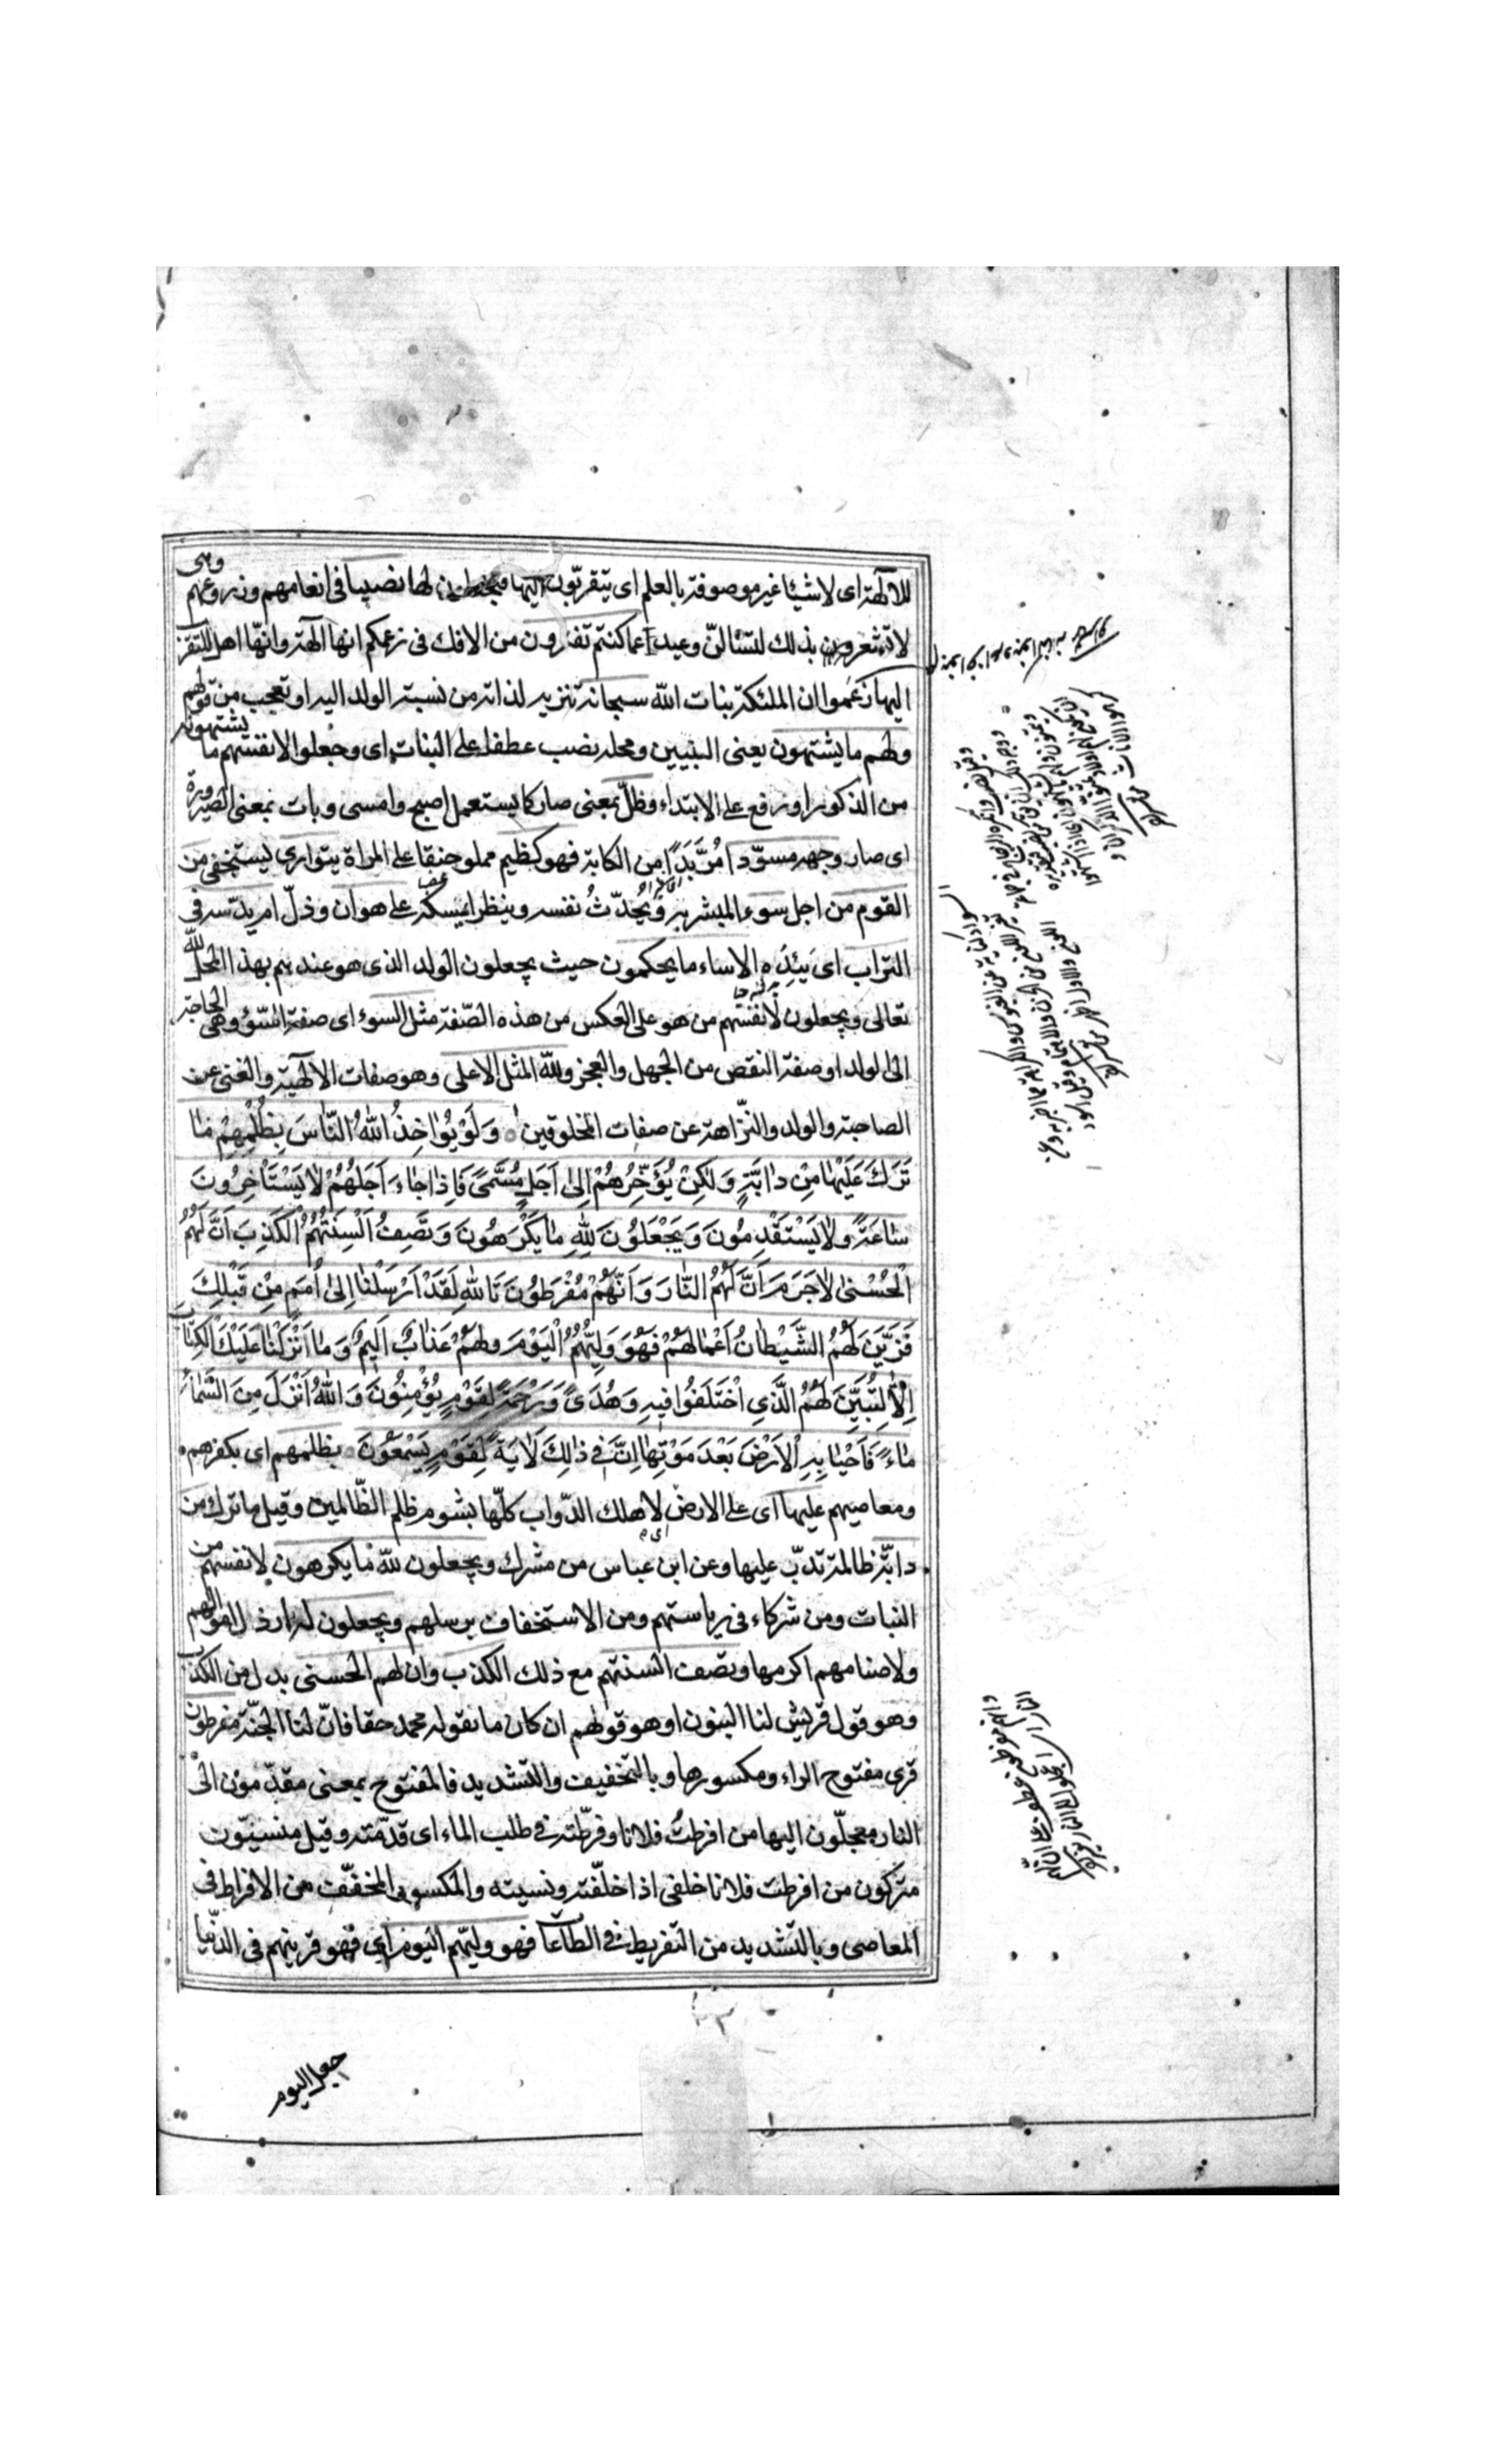 للآلهة اى لاشياء غير موصوفة بالعلم اى يتقربون اليها فيجعلون لها نصيبا فى انعامهم وزروعهم وهى
لا تشعرون بذلك لتسئلنّ وعيد عما كنتم تفترون من الافك فى زعمكم انها آلهة وانّها اهل للتقرّب
اليها زعموا ان الملئكة بنات الله سبحانه تنزيه لذاته من نسبة الولد اليه او تعجب من قولهم
ولهم ما يشتهون يعنى البنيين ومحله نصب عطف على البنات اى وجعلوا لانفسهم ما يشتهونه
من الذكور او رفع على الابتداء وظلّ بمعنى صار كما يستعمل اصبح وامسى وبات بمعنى الصيرورة
اى صار وجهه مسوّدا مُرَّبَدًا من الكابة فهو كظيم مملو حنقا على المراة يتوارى يستخفى من
القوم من اجل سوء المبشر به ويُحدّثُ نفسه وينظر ايمسكه على هوان وذلّ ام يدسه فى
التراب اى يَئِدُه الا ساء ما يحكمون حيث يجعلون الولد الذى هو عندهم بهذا المحل لله
تعالى ويجعلون لانفسهم من هو على العكس من هذه الصّفة مثل السوء اى صفة السّوء وهى الحاجة
الى لولد او صفة النقص من الجهل والعجز ولله المثل الاعلى وهو صفات الالهية والغنى عن
الصاحبة والولد والنّزاهة عن صفات المخلوقين وَلَوْ يُؤاخِذُ اللهُ النّاسَ بِظُلْمِهِمْ مٰا
تَرَكَ عَلَيْهٰا مِنْ دٰابَّةٍ وَلٰكِنْ يُؤَخِّرُهُمْ اِلىٰ اَجَلٍ مُسَمّىً فَاِذٰا جٰاءَ اَجَلُهُمْ لٰا يَسْتَأْخِرُونَ
سٰاعَةً وَلٰا يَسْتَقْدِمُونَ وَيَجْعَلُونَ لِلّٰهِ مٰا يَكْرَهُونَ وَتَصِفُ اَلْسِنَتُهُمُ الْكَذِبَ اَنَّ لَهُمُ
الْحُسْنىٰ لٰا جَرَمَ اَنَّ لَهُمُ النّٰارَ وَاَنَّهُمْ مُفْرَطُونَ تَاللهِ لَقَدْ اَرْسَلْنٰا اِلىٰ اُمَمٍ مِنْ قَبْلِكَ
فَزَيَّنَ لَهُمُ الشَّيْطٰانُ اَعْمٰالَهُمْ فَهُوَ وَلِيُّهُمُ الْيَوْمَ وَلَهُمْ عَذٰابٌ اَليمٌ وَمٰا اَنْزَلْنٰا عَلَيْكَ الْكِتٰابَ
اِلّٰا لِتُبَيِّنَ لَهُمُ الَّذِي اخْتَلَفُوا فيهِ وَهُدىً وَرَحْمَةً لِقَوْمٍ يُؤْمِنُونَ وَاللهُ اَنْزَلَ مِنَ السَّمٰاءِ
مٰاءً فَاَحْيٰا بِهِ الْاَرْضَ بَعْدَ مَوْتِهٰا اِنَّ فِي ذٰلِكَ لَاٰيَةً لِقَوْمٍ يَسْمَعُونَ بظلمهم اى بكفرهم
ومعاصيهم عليها اى على الارض لاهلك الدّواب كلّها بشوم ظلم الظّالمين وقيل ما ترك من
دابّة ظالمة تدبّ عليها وعن ابن عباس من مشرك ويجعلون لله ما يكرهون لانفسهم من
البنات ومن شركاء فى رياستهم ومن الاستخفاف برسلهم ويجعلون له ارذل اموالهم
ولاصنامهم اكرمها وتصف السنتهم مع ذلك الكذب وان لهم الحسنى بدل من الكذب
وهو قول قريش لنا البنون او هو قولهم ان كان ما يقوله محمد حقا فانّ لنا الجنّة مفرطون
قرى مفتوح الراء ومكسورها وبالتخفيف والتشديد فالمفتوح بمعنى مقدّمون الى
النار معجلّون اليها من افرطتُ فلانا وفرّطته فى طلب الماء اى قدّمته وقيل منسيّون
متركون من افرطت فلانا خلفى اذا خلّفته ونسيته والمكسور المخفّف من الافراط فى
المعاصى وبالتشديد من التفريط فى الطاعات فهو وليّهم اليوم اى فهو قرينهم فى الدّنيا
جعل اليوم